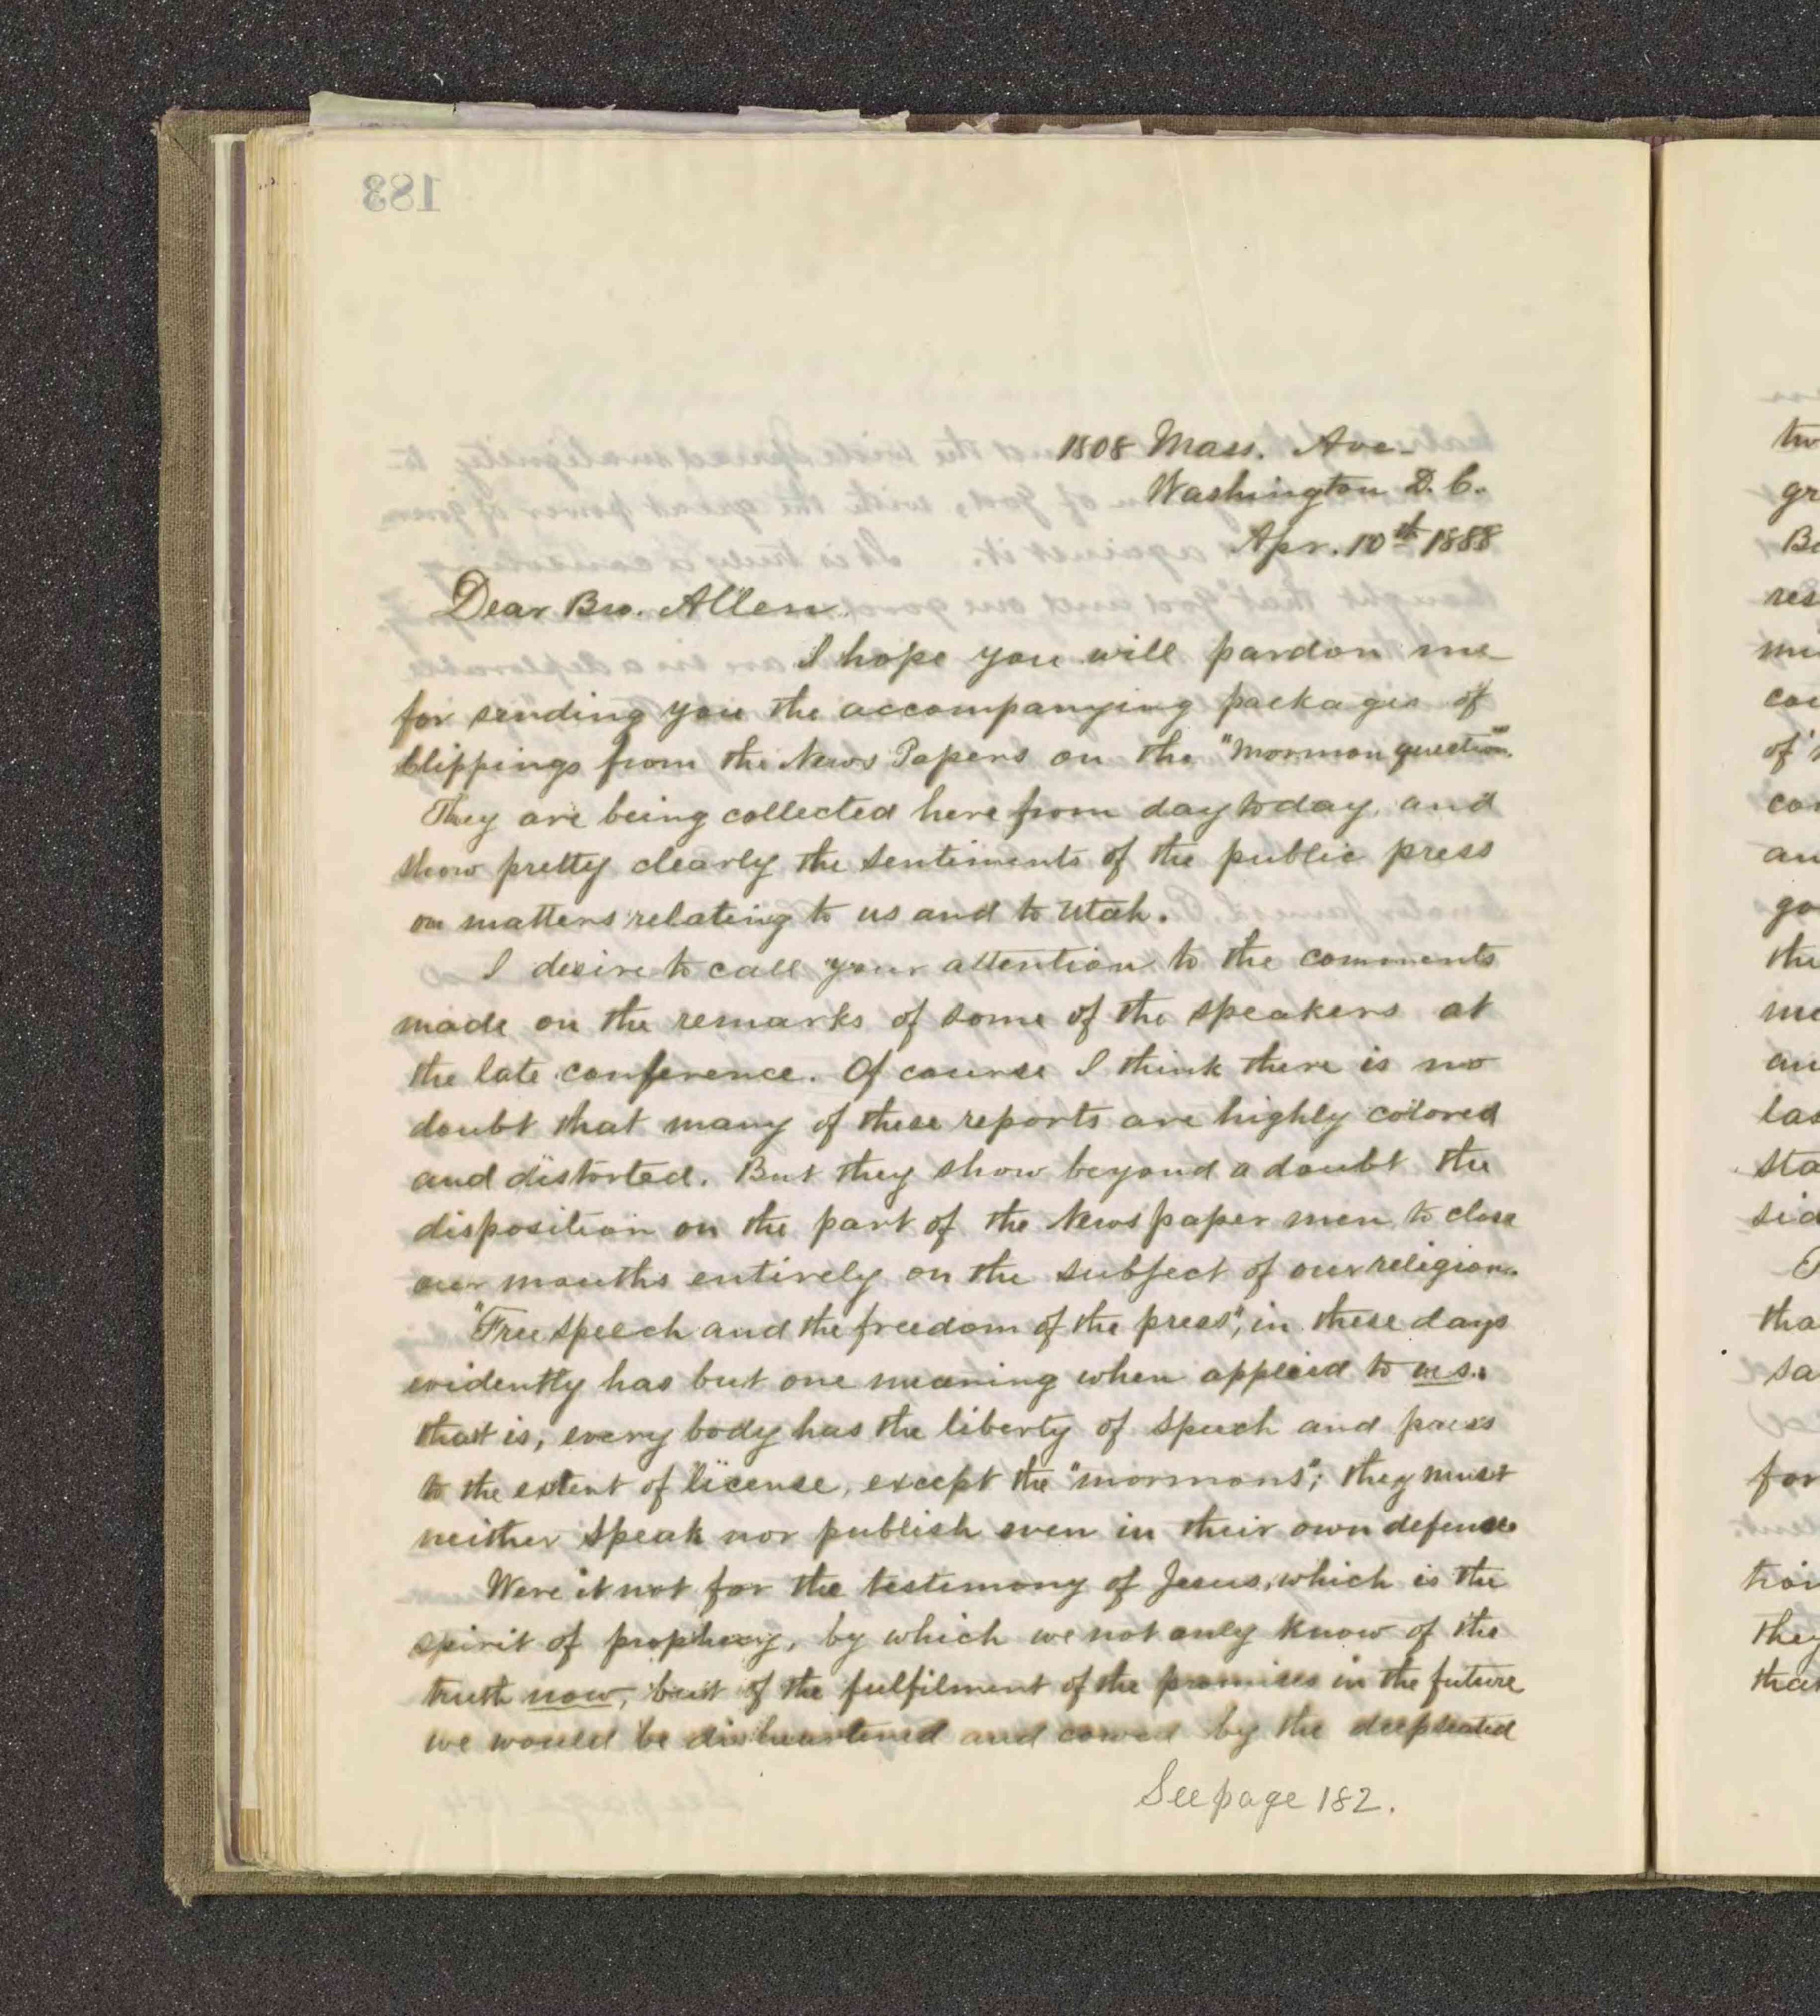 183
1808 Mass. Ave.
Washington D.C.
Apr. 10th 1888
Dear Bro. Allen.
I hope you will pardon me
for sending you the accompanying packages of
Clippings from the News Papers on the "Mormon question".
They are being collected here from day to day, and
show pretty clearly the sentiments of the public press
on matters relating to us and to Utah.
I desire to call your attention to the comments
made on the remarks of some of the speakers at
the late conference. Of course I think there is no
doubt that many of these reports are highly colored
and distorted. But they show beyond a doubt the
disposition on the part of the Newspaper men to close
our mouths entirely on the subject of our religion.
"Free speech and the freedom of the press", in these days
evidently has but one meaning when applied to us.
that is, every body has the liberty of speech and press
to the extent of license, except the "mormons"; they must
neither speak nor publish even in their own defense
Were it not for the testimony of Jesus, which is the
spirit of prophecy, by which we not only know of the
truth now, but of the fulfilment of the promises in the future
we would be disheartened and cowed by the deepseated
See page 182.